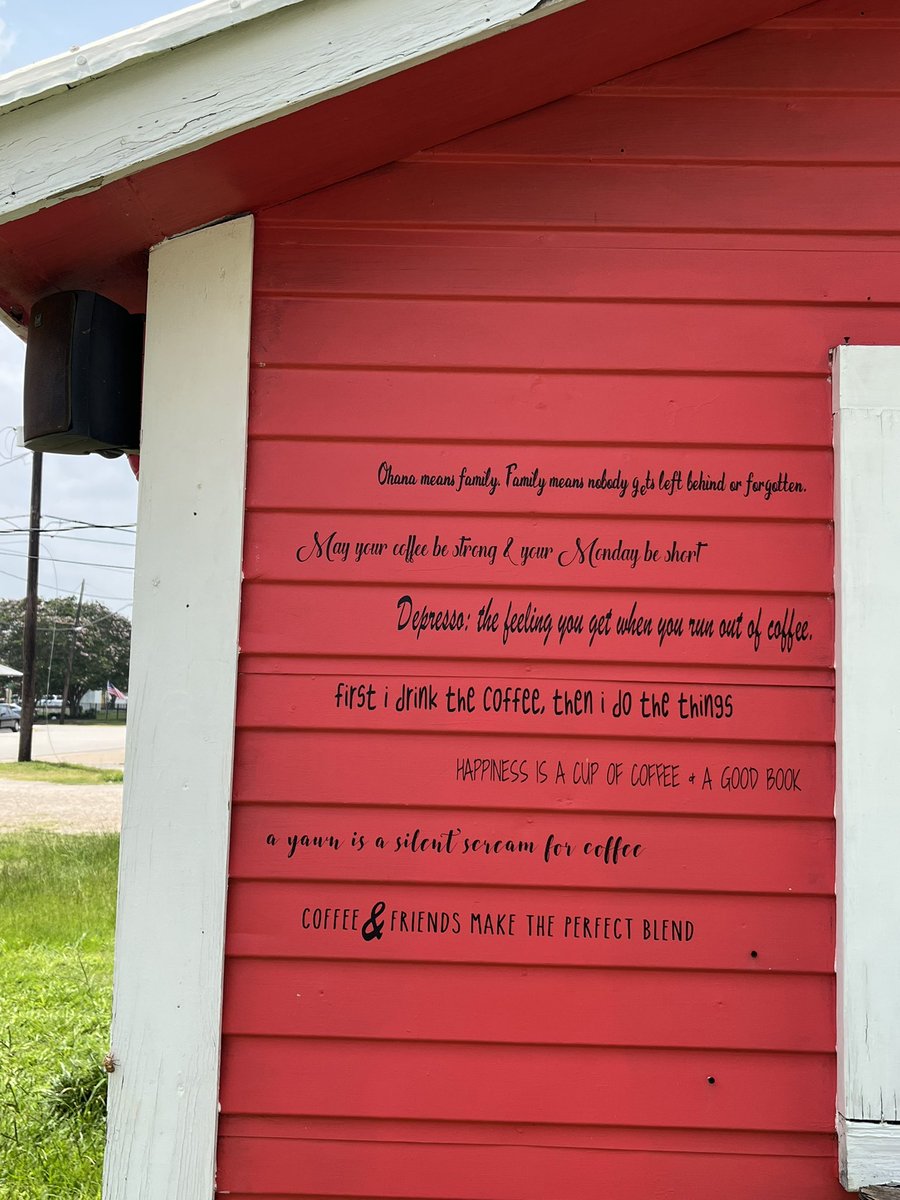 Ohana means family. Family means nobody gets left behind or forgotten.
May your coffee be strong & your Monday be short
Depresso: the feeling you get when you run out of coffee.
first i drink the coffee, then i do the things
HAPPINESS IS A CUP OF COFFEE & A GOOD BOOK
a yawn is a silent scream for coffee
COFFEE & FRIENDS MAKE THE PERFECT BLEND